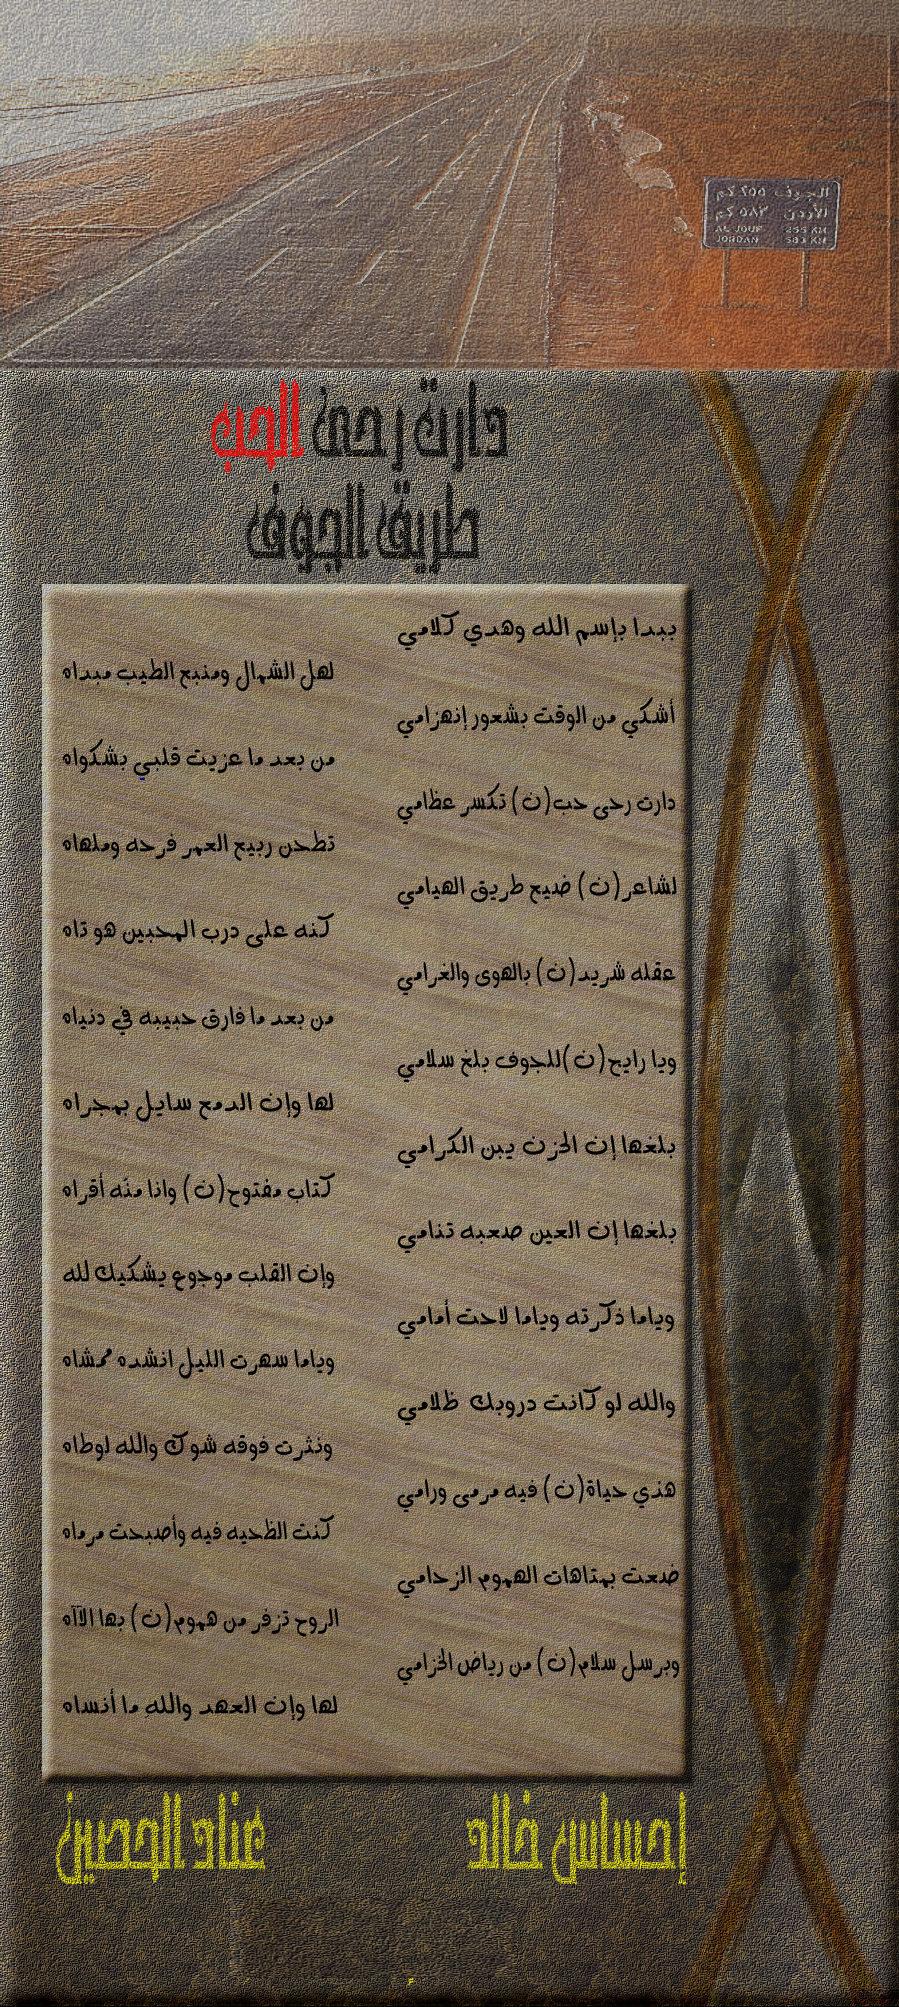 الجوف ٢٥٥ كم
الأردن ٥٨٣ كم
AL JOUF 255 KM
JORDAN 583 KM
دارت رحى الحب
طريق الجوف
ببدا بإسم الله وهدي كلامي
لهل الشمال ومنبع الطيب مبداه
أشكي من الوقت بشعور إنهزامي
من بعد ما عزيت قلبي بشكواه
دارت رحى حب(ن) تكسر عظامي
تطحن ربيع العمر فرحه وملهاه
لشاعر(ن) ضيع طريق الهيامي
كنه على درب المحبين هو تاه
عقله شريد(ن) بالهوى والغرامي
من بعد ما فارق حبيبه في دنياه
ويا رايح(ن)للجوف بلغ سلامي
لها وإن الدمع سايل بمجراه
بلغها إن الحزن يبن الكرامي
كتاب مفتوح(ن) واذا منه أقراه
بلغها إن العين صعبه تنامي
وإن القلب موجوع يشكيك لله
وياما ذكرته وياما لاحت أمامي
وياما سهرت الليل انشده ممشاه
والله لو كانت دروبك ظلامي
ونثرت فوقه شوك والله لوطاه
هذي حياة(ن) فيه مرمى ورامي
كنت الظحيه فيه وأصبحت مرماه
ضعت بمتاهات الهموم الزحامي
الروح تزفر من هموم(ن) بها الآآه
وبرسل سلام(ن) من رياض الخزامي
لها وإن العهد والله ما أنساه
إحساس خالد
عناد الحصين